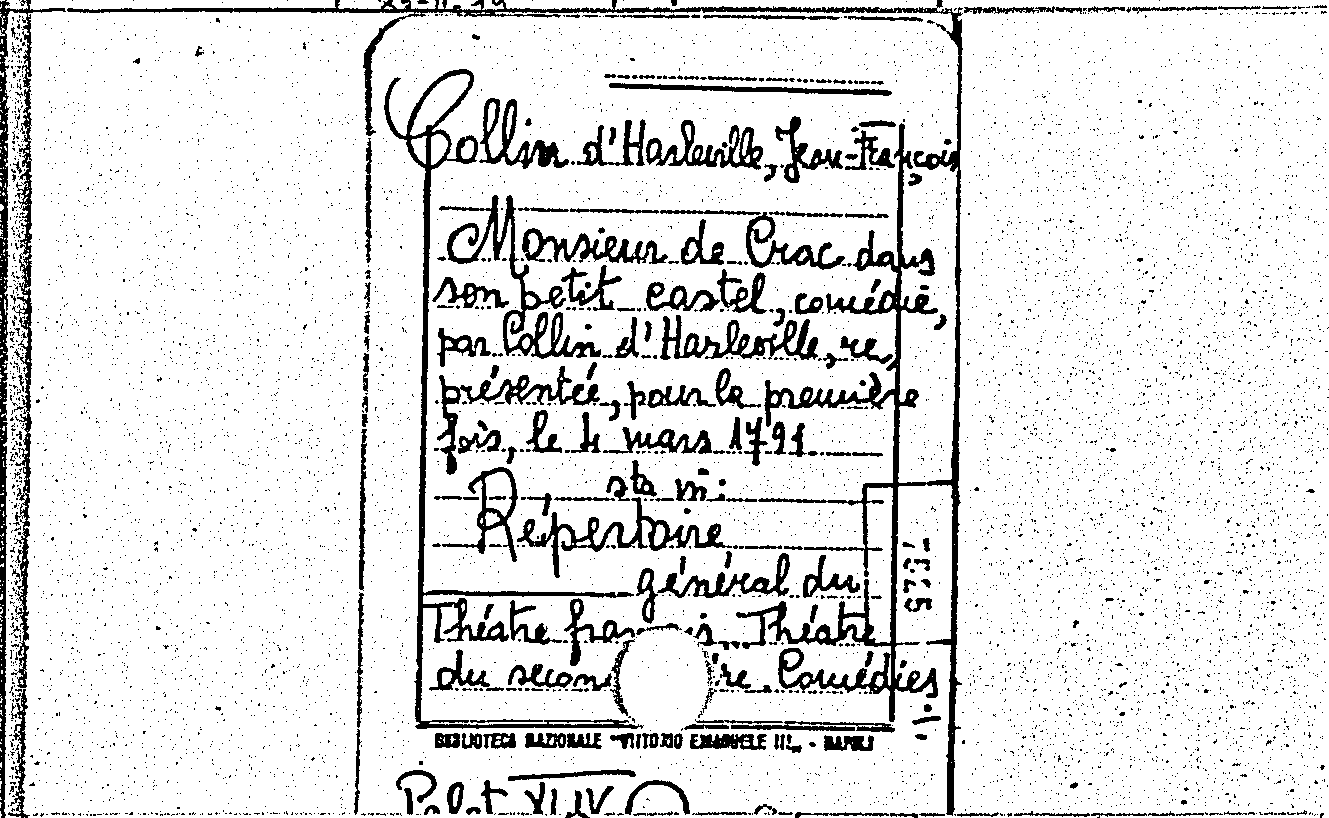 Collin d'Harleville, Jean-François
Monsieur de Crac dans
son petit castel, comédie,
par Collin d'Harleville, re,
présentée, pour la première
fois, le 4 mars 1791.
sta in:
Répertoire
général du
Théâtre Théâtre
du Comédies
BIBLIOTECA NAZIONALE "VITTORIO EMANUELE III„ - NAPOLI